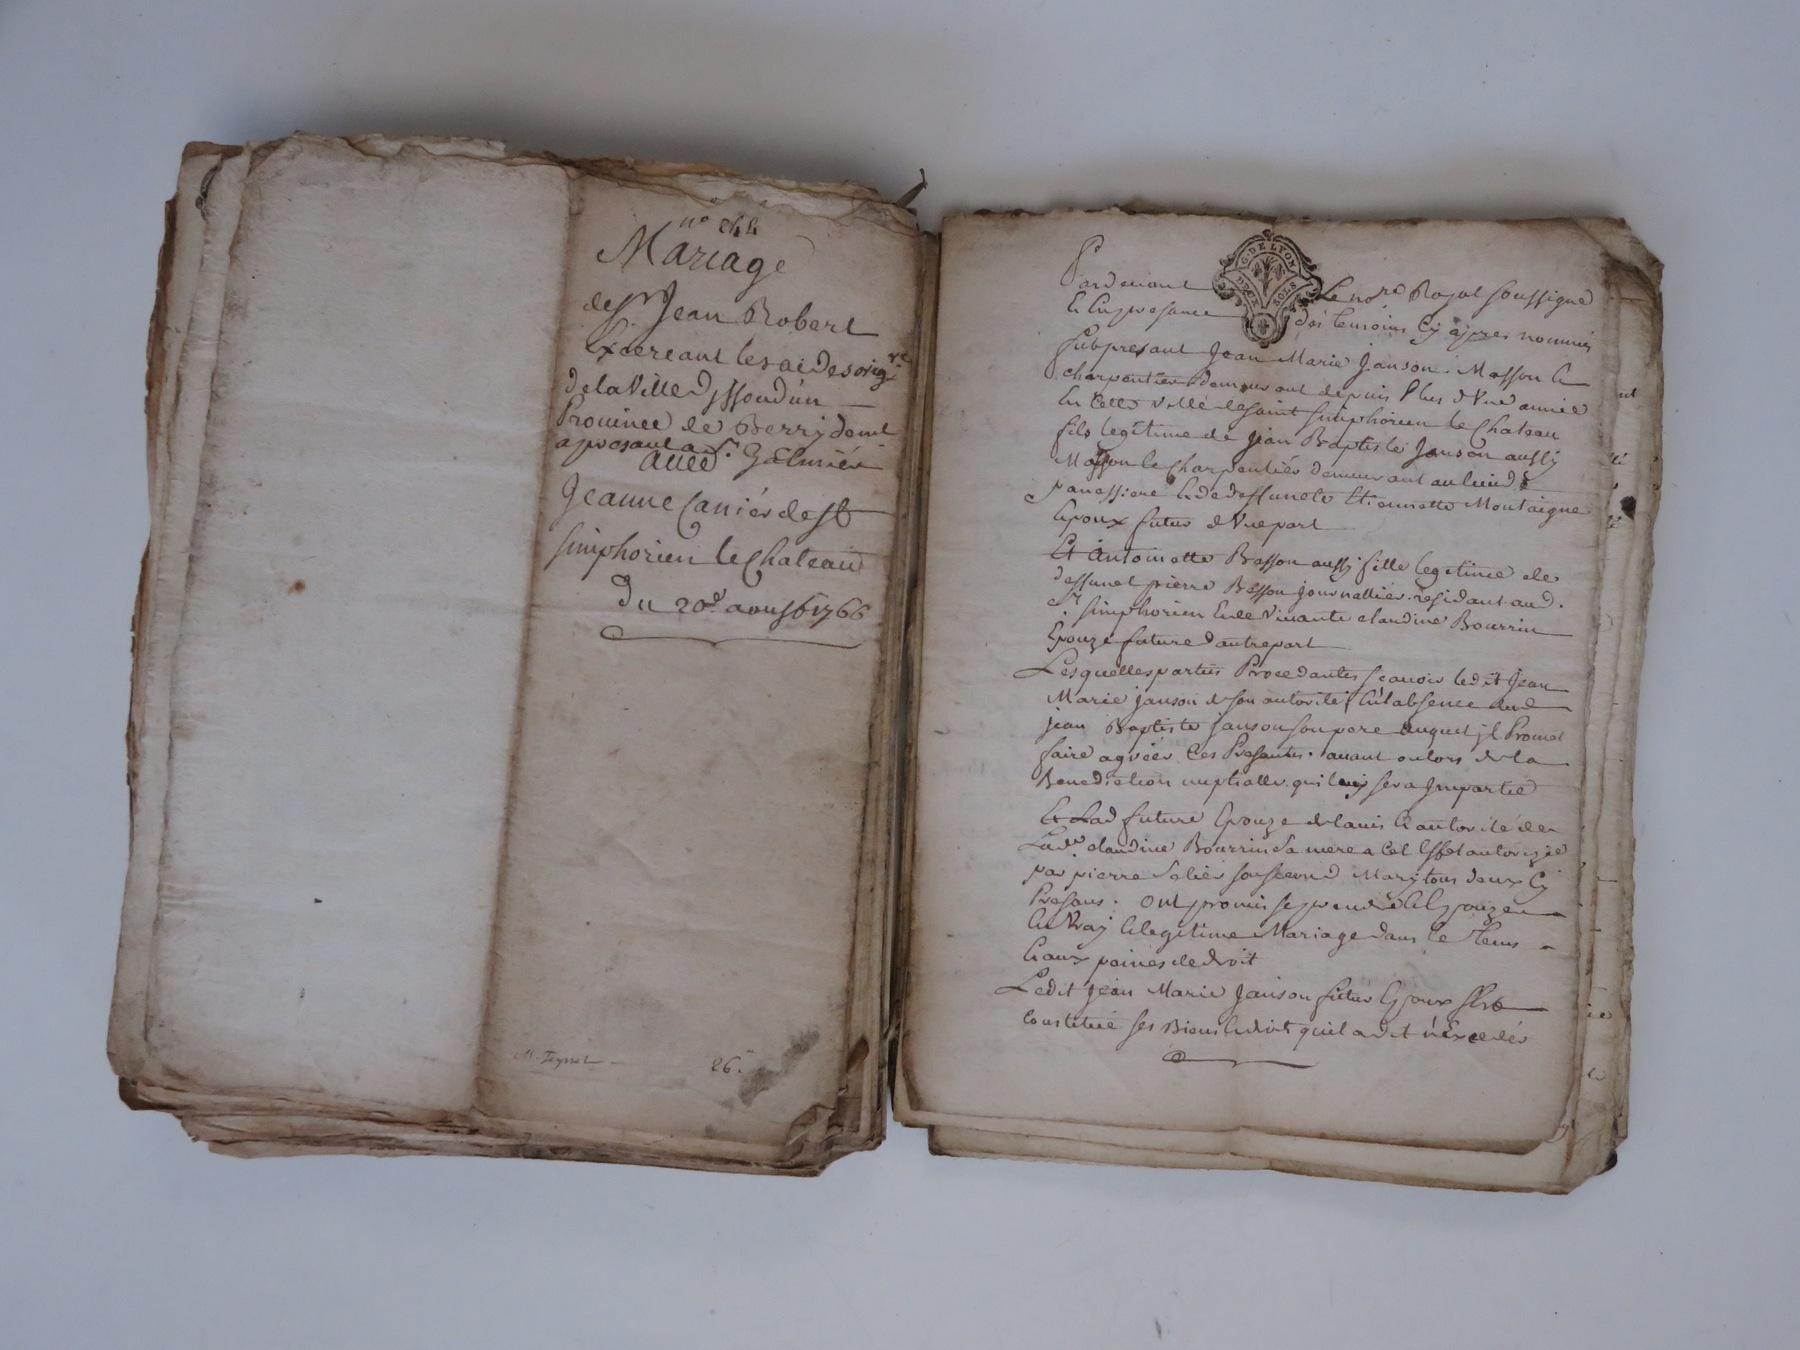 n° 244
Mariage
de Sr. Jean Robert
Exercant les aides orige.re
de la Ville dyssoudun
Prouince de Berry demt.
a present a St. Galmier
auec
Jeanne Canier de St
simphorien le Chateau
du 20e aoust 1766
M. Teyssot
26.
G. DE LYON
DEUX SOLS
Pardeuant Le nore Royal soussigné
Et En presance des temoins Cy apres nommés
fut present Jean Marie Janson Masson Et
charpentier demeurant depuis Plus d'Vne année
En Cette ville de saint simphorien le Chateau
fils legitime de Jean Baptiste Janson aussy
Masson Et Charpentier demeurant au lieu de
panessiere Et de deffunete Etiennette Montaigne
Epoux futur d'Vne part
Et Antoinette Besson aussy fille legitime de
deffunct pierre Besson journallier residant aud.
St simphorien Et de Viuante claudine Bourrin
Epouze future d'autre part
Lesquelles parties Procedantes scauoir ledit Jean
Marie Janson de son autorité En labsence dud
jean Baptiste janson son pere auquel jl Promet
faire agréer Ces Presantes auant ou lors de la
Benediction nuptialle qui leur sera Jmpartie
Et Lad future Epouze de lauis Et autorité de
Lade. claudine Bourrin sa mere a Cet Effet autorizée
par pierre Solier son second Mary tous deux Cy
Presans. Ont promis se prendre Et Epouzer
En Vray Et legitime Mariage dans le Tems
Et aux peines de droit
Ledit Jean Marie Janson futur Epoux sest
Constitué ses Biens Et droits quil a dit n'Exceder